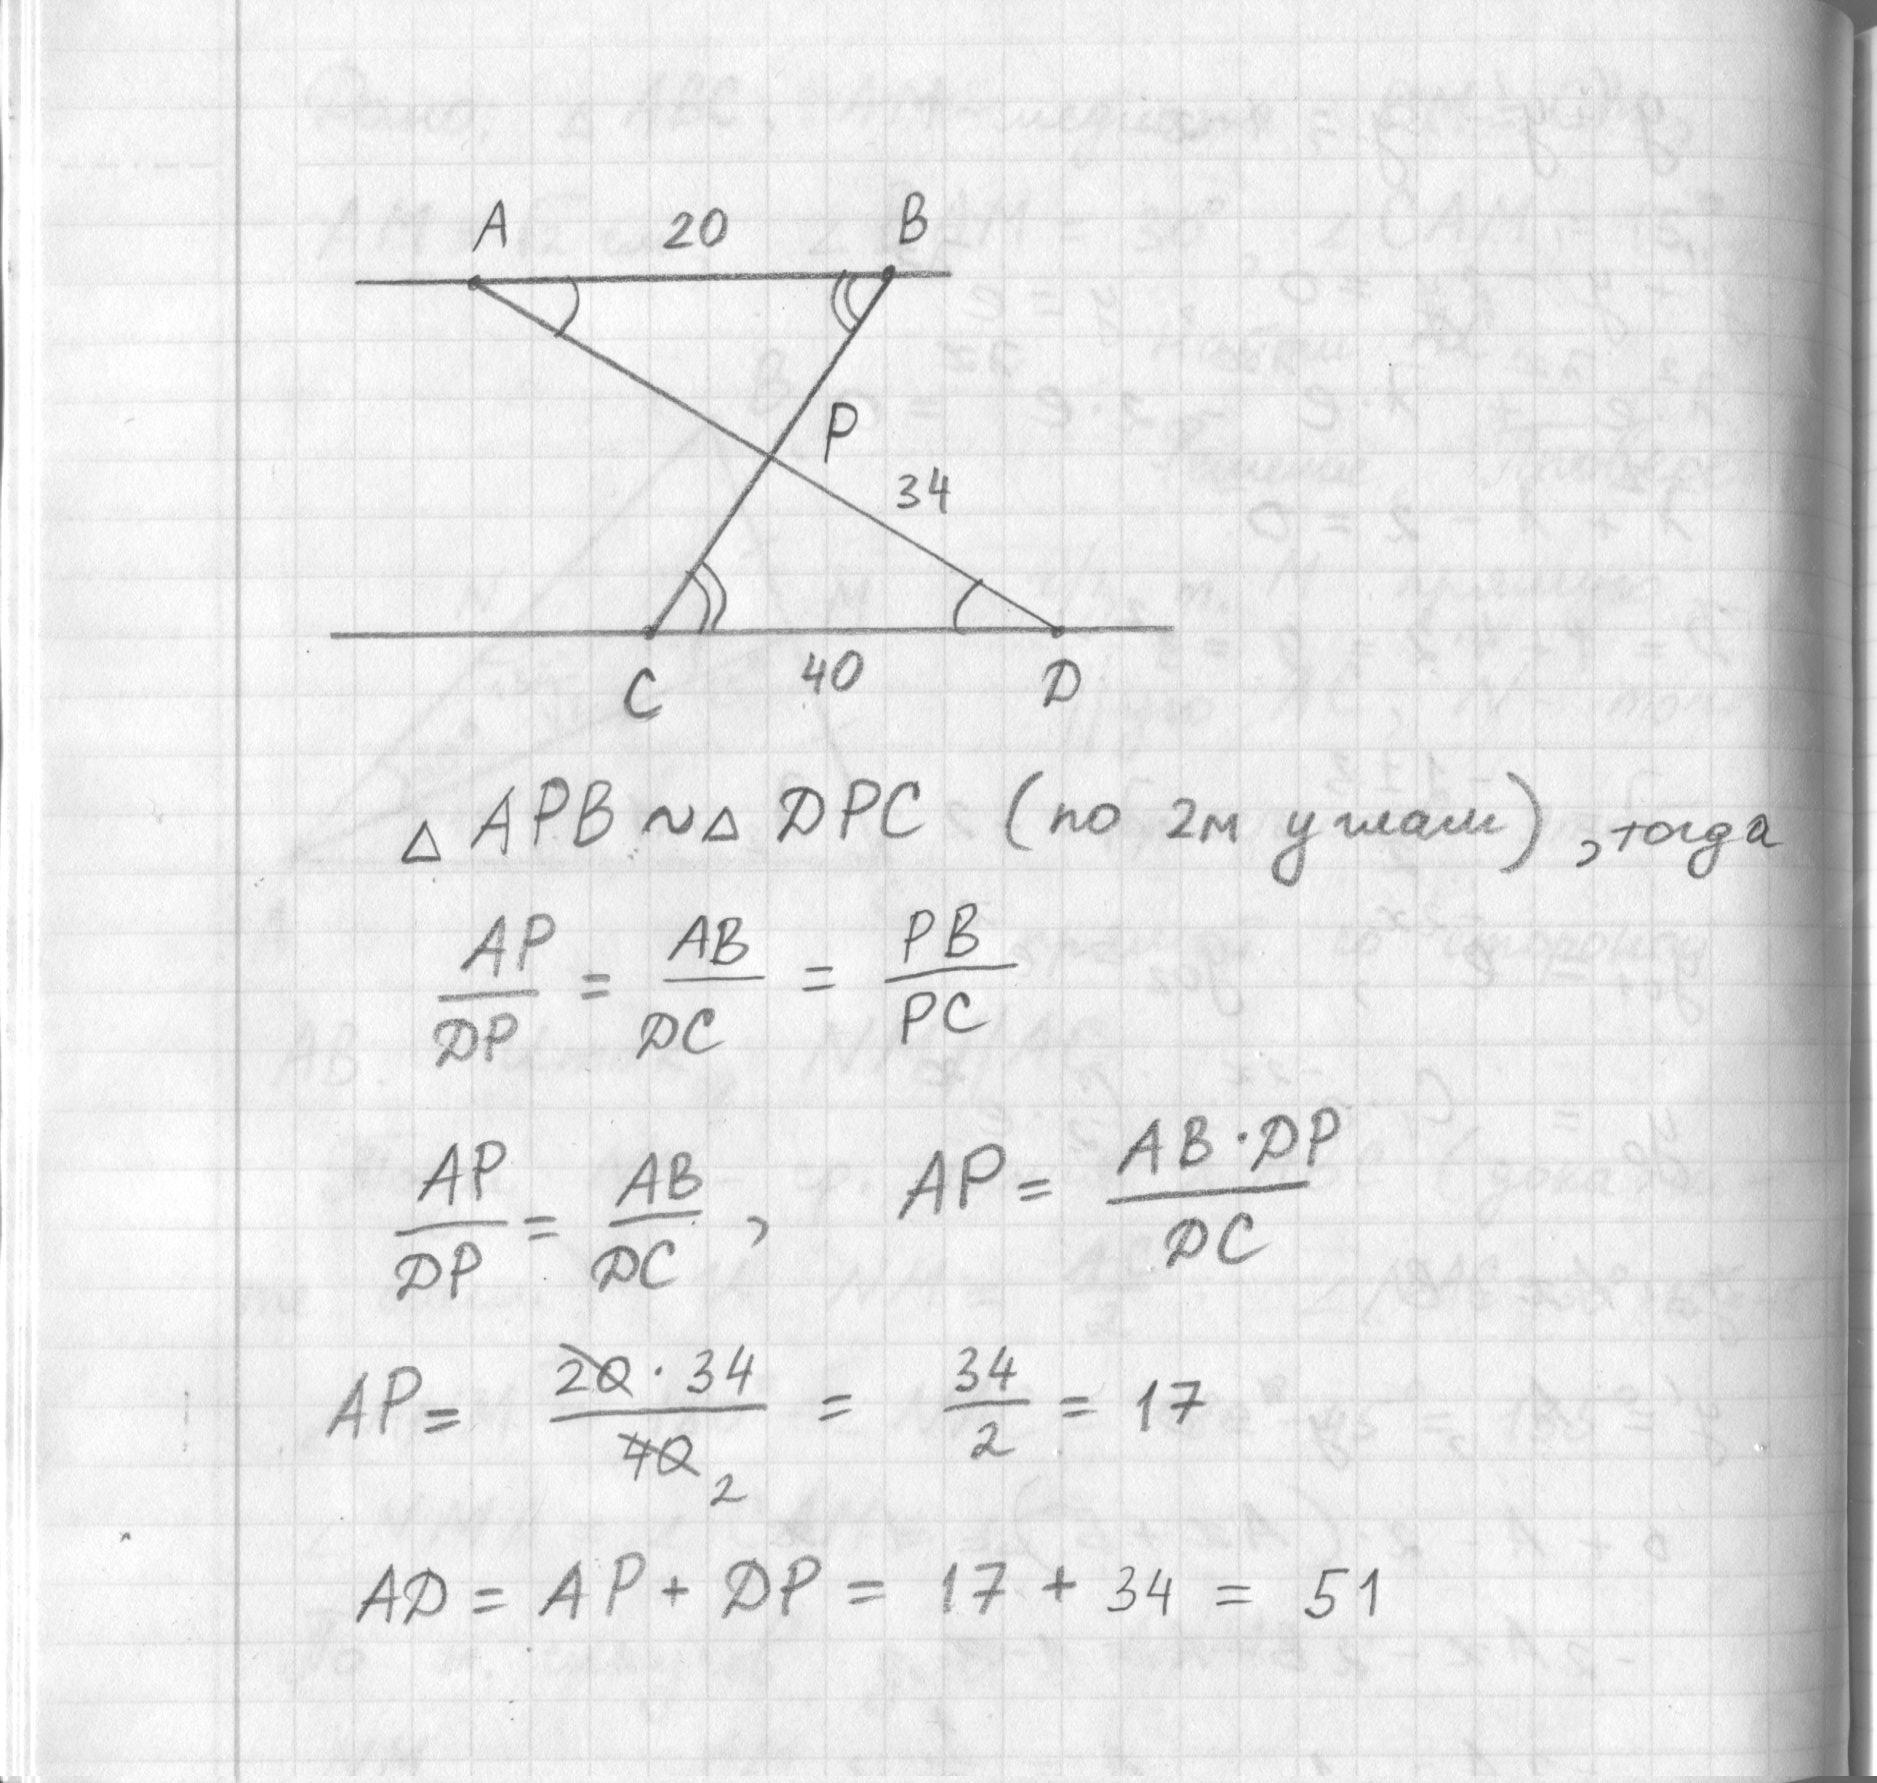 A 20 B
P
34
C 40 D
△ APB ~ △ DPC (по 2м углам), тогда
AP/DP = AB/DC = PB/PC
AP/DP = AB/DC, AP = AB·DP/DC
AP = 20·34/40 2 = 34/2 = 17
AD = AP + DP = 17 + 34 = 51